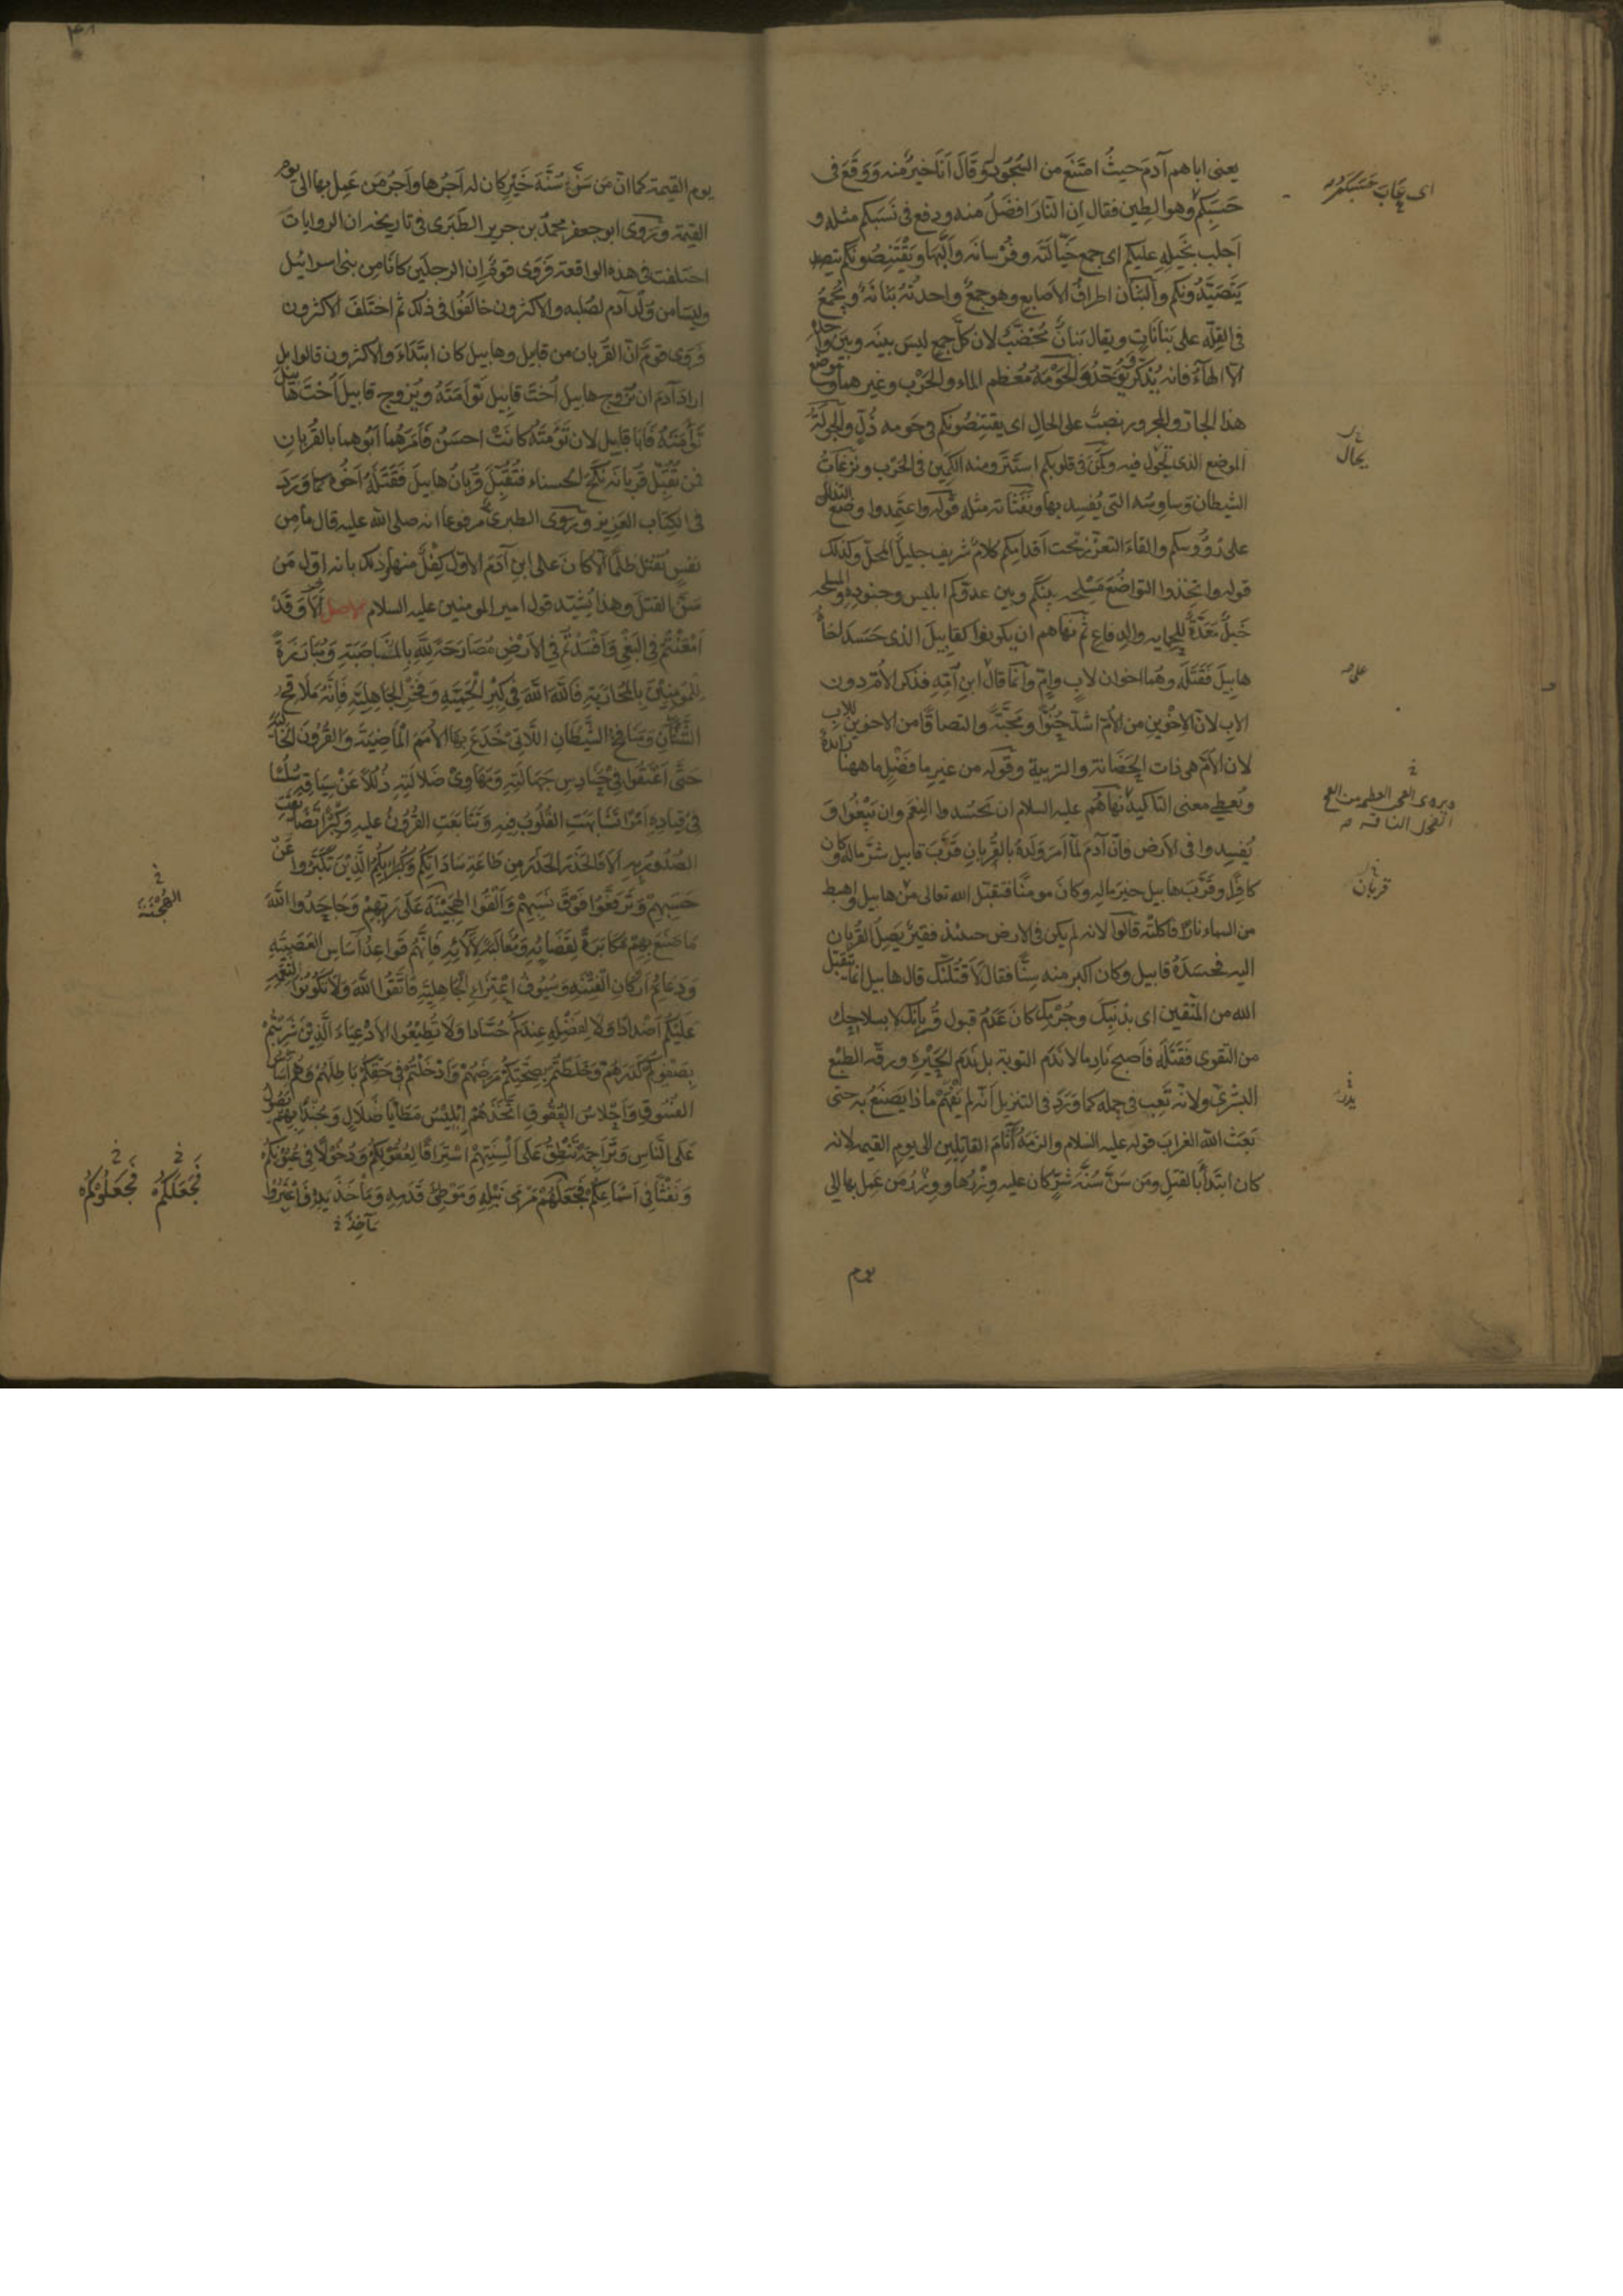 يعنى اباهم آدم حيثُ امتَنَعَ من السُّجُود وَقَالَ اَنَا خيرٌ منه وَوَقَعَ فى
حَسَبِكم وهو الطين فقال اِن النّارَ افضَلُ منه ودفع فى نَسَبكم مثله و
اَجلب بخَيلِهِ عليكم اى جمع خَيّالَتَه وفُرْسانَه وَاَلَّبَها وَيَقْتَنِصُونَكم
يَتَصَيَّدُونَكم والبَنَان اطرافُ الاصابع وهو جمعٌ واحدتُهُ بَنَانَةٌ ويُجْمَعُ
فى القِلّه على بَنَانَاتٍ ويقال بَنانٌ مُخَضَّبٌ لان كلّ جمع ليسَ بينَه وبَيَن واحده
الّا الهآءُ فانه يُذكّر ويُوَحّدُ وَالحَوْمَةُ مُعظم الماء والحَرْب وغيرهما وموضع
هذا الجارّ والمجرور نصبٌ على الحال اى يقتنِصُونكم فى حَومه ذُلٍّ والجَولَةُ
الموضع الذى تَجُول فيه وكَمَنَ فى قلوبكم استَتَرَ ومنه الكَمِين فى الحَرْب ونزغَاتُ
الشيطان وَساوِسُه التى يُفسِد بها ونَفَثَاته مثله قوله واعتَمِدوا وضعَ التذلل
على رُؤُوسكم والقاءَ التعزّز تحت اَقدامِكم كلامٌ شريف جليلُ المحلّ وكذلك
قوله واتّخِذوا التواضُعَ مَسْلحه بينكم وبين عدوّكم ابليس وجنودِهِ والمسلحه
خَيلٌ مُعَدَّةٌ للحمايه والدِفاع ثم نهَاهم ان يكونوا كقابيلَ الذى حَسَدَ اخاهُ
هابيلَ فَقَتَلَه وهُما اخوان لابٍ واُمٍّ وَانّما قال ابنِ اُمِّهِ فذكر الاُمّ دون
الاب لانّ الاخْوَين من الاُمّ اشدُّ حُنُوًّا ومَحَبَّةً والتصاقًا من الاخوين للاب
لان الاُمّ هى ذات الحَضَانة والتربية وقوله من غير ما فَضْلٍ ما ههنا زايدة
وتُعطِى معنى التاكيد نَهاهُم عليه السلام ان يَحْسُدوا النِعَم وان يَبْغُوا وَ
يُفسِدوا فى الاَرض فانّ آدمَ لمّا اَمَرَ وَلَدَهُ بالقُربانِ قَرَّبَ قابيل شَرَّ ماله وكان
كافرًا وقَرَّبَ هابيل خيرَ مالِهِ وكانَ مومنًا فتقبّل الله تعالى من هابيل واهبط
من السماء نارًا فاكلَتْه قالوا لانه لم يكن فى الارض حينئذ فقيرٌ يَصِلُ القُربان
اليه فحسَدَهُ قابيل وكان اكبر منه سِنًّا فقال لَاَقتُلَنّك قال هابيل انما يتقبّل
الله من المتّقين اى بذنبِكَ وجُرْمِكَ كانَ عَدَمُ قبول قُربانِك لانسلاخِك
من التقوى فَقَتَلَه فاَصبح نادِما لا نَدَم التوبة بل نَدَم الحَيْرهِ ورقّه الطبْع
البشَرىّ ولانّه تَعِبَ فى حمله كما وَرَدَ فى التنزيل انّه لم يَفْهَمْ ماذا يَصْنَعُ به حتى
بَعَثَ الله الغرابَ قوله عليه السّلام والزمَهُ آثامَ القاتِلين الى يوم القيمه لانه
كان ابتَدأ بالقتلِ ومَن سَنّ سُنّةَ شرٍّ كان عليه وِزْرُها ووِزْرُ مَن عَمِل بها الى
يوم
اى عَابَ حَسَبَكم
يجال
قربان
يوم القيمة كما انّ مَن سَنَّ سُنَّةَ خَيرٍ كان له اَجرُها واَجرُ مَن عَمِل بها الى يوم
القيمة ورَوى ابو جعفر محمّد بن جرير الطَبَرى فى تاريخه ان الروايات
اختلفت فى هذه الواقعة فرَوى قوم اِن الرجلَين كانا مِن بنى اسرائيل
وليسا من وُلْد آدم لصُلبه والاكثرون خالَفُوا فى ذلك ثم اختَلفَ الاكثرون
فروى قوم انّ القُربان من قابيل وهابيل كان ابتِدَاءً والاكثرون قالوا بل
ارادَ آدم ان يُزَوج هابيل اُختَ قابيل تَوأمَتَهُ ويُزَوج قابيلَ اُخْتَ هابيل
تَوأمَتَهُ فابا قابيل لان تَوءمَتَهُ كانَتْ احسَنُ فَاَمَرَهُما ابُوهما بالقُربانِ
فمن تُقُبّل قُربانه نكَحَ الحسناء فتُقُبّلَ قُربانُ هابيل فقَتَلَهُ اخُوه كما وَرَدَ
فى الكِتاب العَزيز ورَوى الطبرى مرفوعًا انه صلى الله عليه قال ما مِن
نفس تُقتَلُ ظلمًا الّا كانَ على ابنِ آدَمَ الاوّل كِفْلٌ منها وذلك بانه اوّل مَن
سَنَّ القتلَ وهذا يُشَيّد قول امير المومنين عليه السلام الاصل اَلَا وَقَدْ
اَمْعَنْتُمْ فى البَغْىِ وَاَفْسَدْتُمْ فى الاَرْضِ مُصَارَحَةً لِلّهِ بِالمُنَاصَبَةِ وَمُبَارَزَةً
لِلمُومِنِيْنَ بِالمُحَارَبَةِ فَاللّهَ اللّهَ فى كِبْرِ الحَمِيَّةِ وَفَخْرِ الجَاهِلِيَّةِ فَاِنَّهُ مَلَاقِحُ
الشَّنَآنِ وَمَنَافِخُ الشَّيْطَانِ اللَّاتِىْ خَدَعَ بِهَا الاُمَمَ المَاضِيَةَ وَالقُرُونَ الخَالِيَةَ
حَتَّى اَعْنَقُوا فِىْ حَنَادِسِ جَهَالَتِهِ وَمَهَاوِىْ ضَلَالَتِهِ ذُلُلًا عَنْ سِيَاقِهِ سُلُسًا
فِىْ قِيَادِهِ اَمْرًا تَشَابَهَتِ القُلُوبُ فِيهِ وَتَتَابَعَتِ القُرُونُ عليهِ وَكِبْرًا تَضَايَقَتِ
الصُّدُورُ بِهِ اَلَا فَالحَذَرَ الحَذَرَ مِن طَاعَةِ سَادَاتِكُمْ وَكُبَرَائِكُمُ الَّذِيْنَ تَكَبَّرُوا عَنْ
حَسَبِهِمْ وَتَرَفَّعُوا فَوْقَ نَسَبِهِمْ وَاَلْقَوُا الهَجِيْنَةَ عَلَى رَبِّهِمْ وَجَاحَدُوا اللَّهَ
مَا صَنَعَ بِهِمْ مُكَابَرَةً لِقَضَائِهِ وَمُغَالَبَةً لِآلَائِهِ فَاِنَّهُمْ قَوَاعِدُ آسَاسِ العَصَبِيَّةِ
وَدَعَائِمُ اَرْكَانِ الفِتْنَةِ وَسُيُوفُ اعْتِزَاءِ الجَاهِلِيَّةِ فَاتَّقُوا اللَّهَ وَلَا تَكُوْنُوا لِنِعَمِهِ
عَلَيْكُم اَضْدَادًا وَلَا لِفَضْلِهِ عِنْدَكُمْ حُسَّادًا وَلَا تُطِيْعُوا الاَدْعِيَاءَ الَّذِيْنَ شَرِبْتُمْ
بِصَفْوِكُمْ كَدَرَهُمْ وَخَلَطْتُمْ بِصِحَّتِكُمْ مَرَضَهُمْ وَاَدْخَلْتُمْ فِى حَقِّكُمْ بَاطِلَهُمْ وَهُمْ آسَاسُ
الفُسُوقِ وَاَحْلَاسُ العُقُوقِ اتَّخَذَهُمْ اِبْلِيْسُ مَطَايَا ضَلَالٍ وَجُنْدًا بِهِمْ يَصُولُ
عَلَى النَّاسِ وَتَرَاجِمَةً يَنْطِقُ عَلَى اَلْسِنَتِهِمْ اسْتِرَاقًا لِعُقُوْلِكُمْ وَدُخُوْلًا فِى عُيُوْنِكُمْ
وَنَفْثًا فِى اَسْمَاعِكُمْ فَجَعَلَهُمْ مَرْمَى نَبْلِهِ وَمَوْطِئَ قَدَمِهِ وَمَأخَذَ يَدِهِ فَاعْتَبِرُوْا
مَآخِذَ
الهُجْنَةَ
فَجَعَلَكُمْ فَجَعَلُوْكُمْ